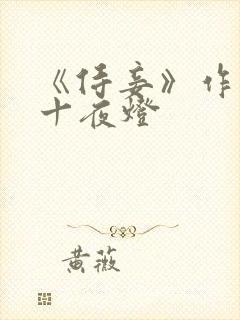 《侍妾》作
十夜燈
黄薇